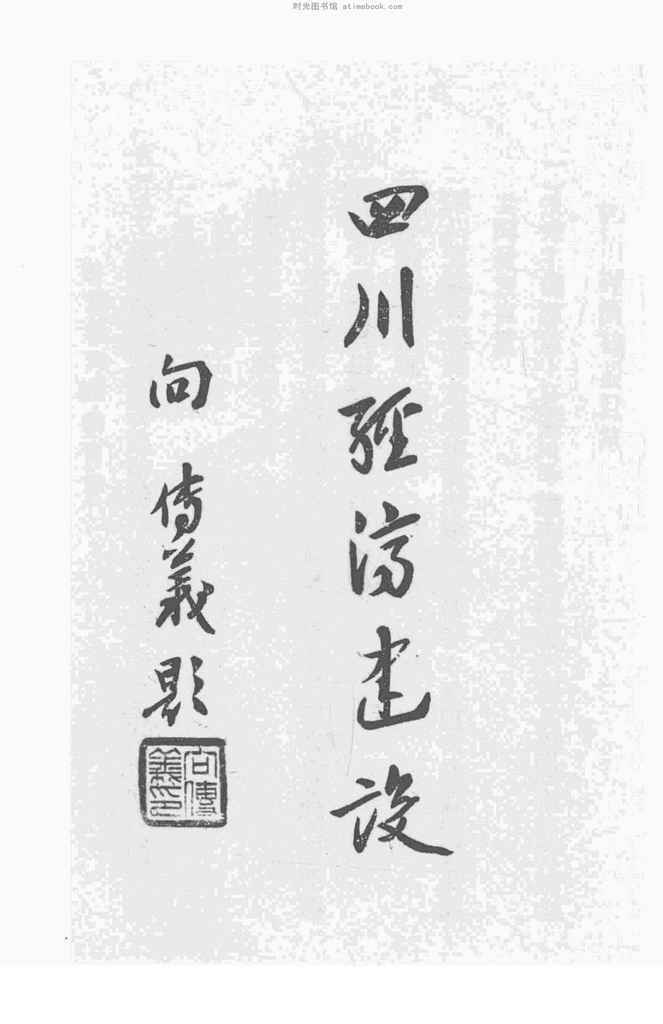 时光图书馆 atimebook.com
四川經济建設
向傳義題
向傳義印